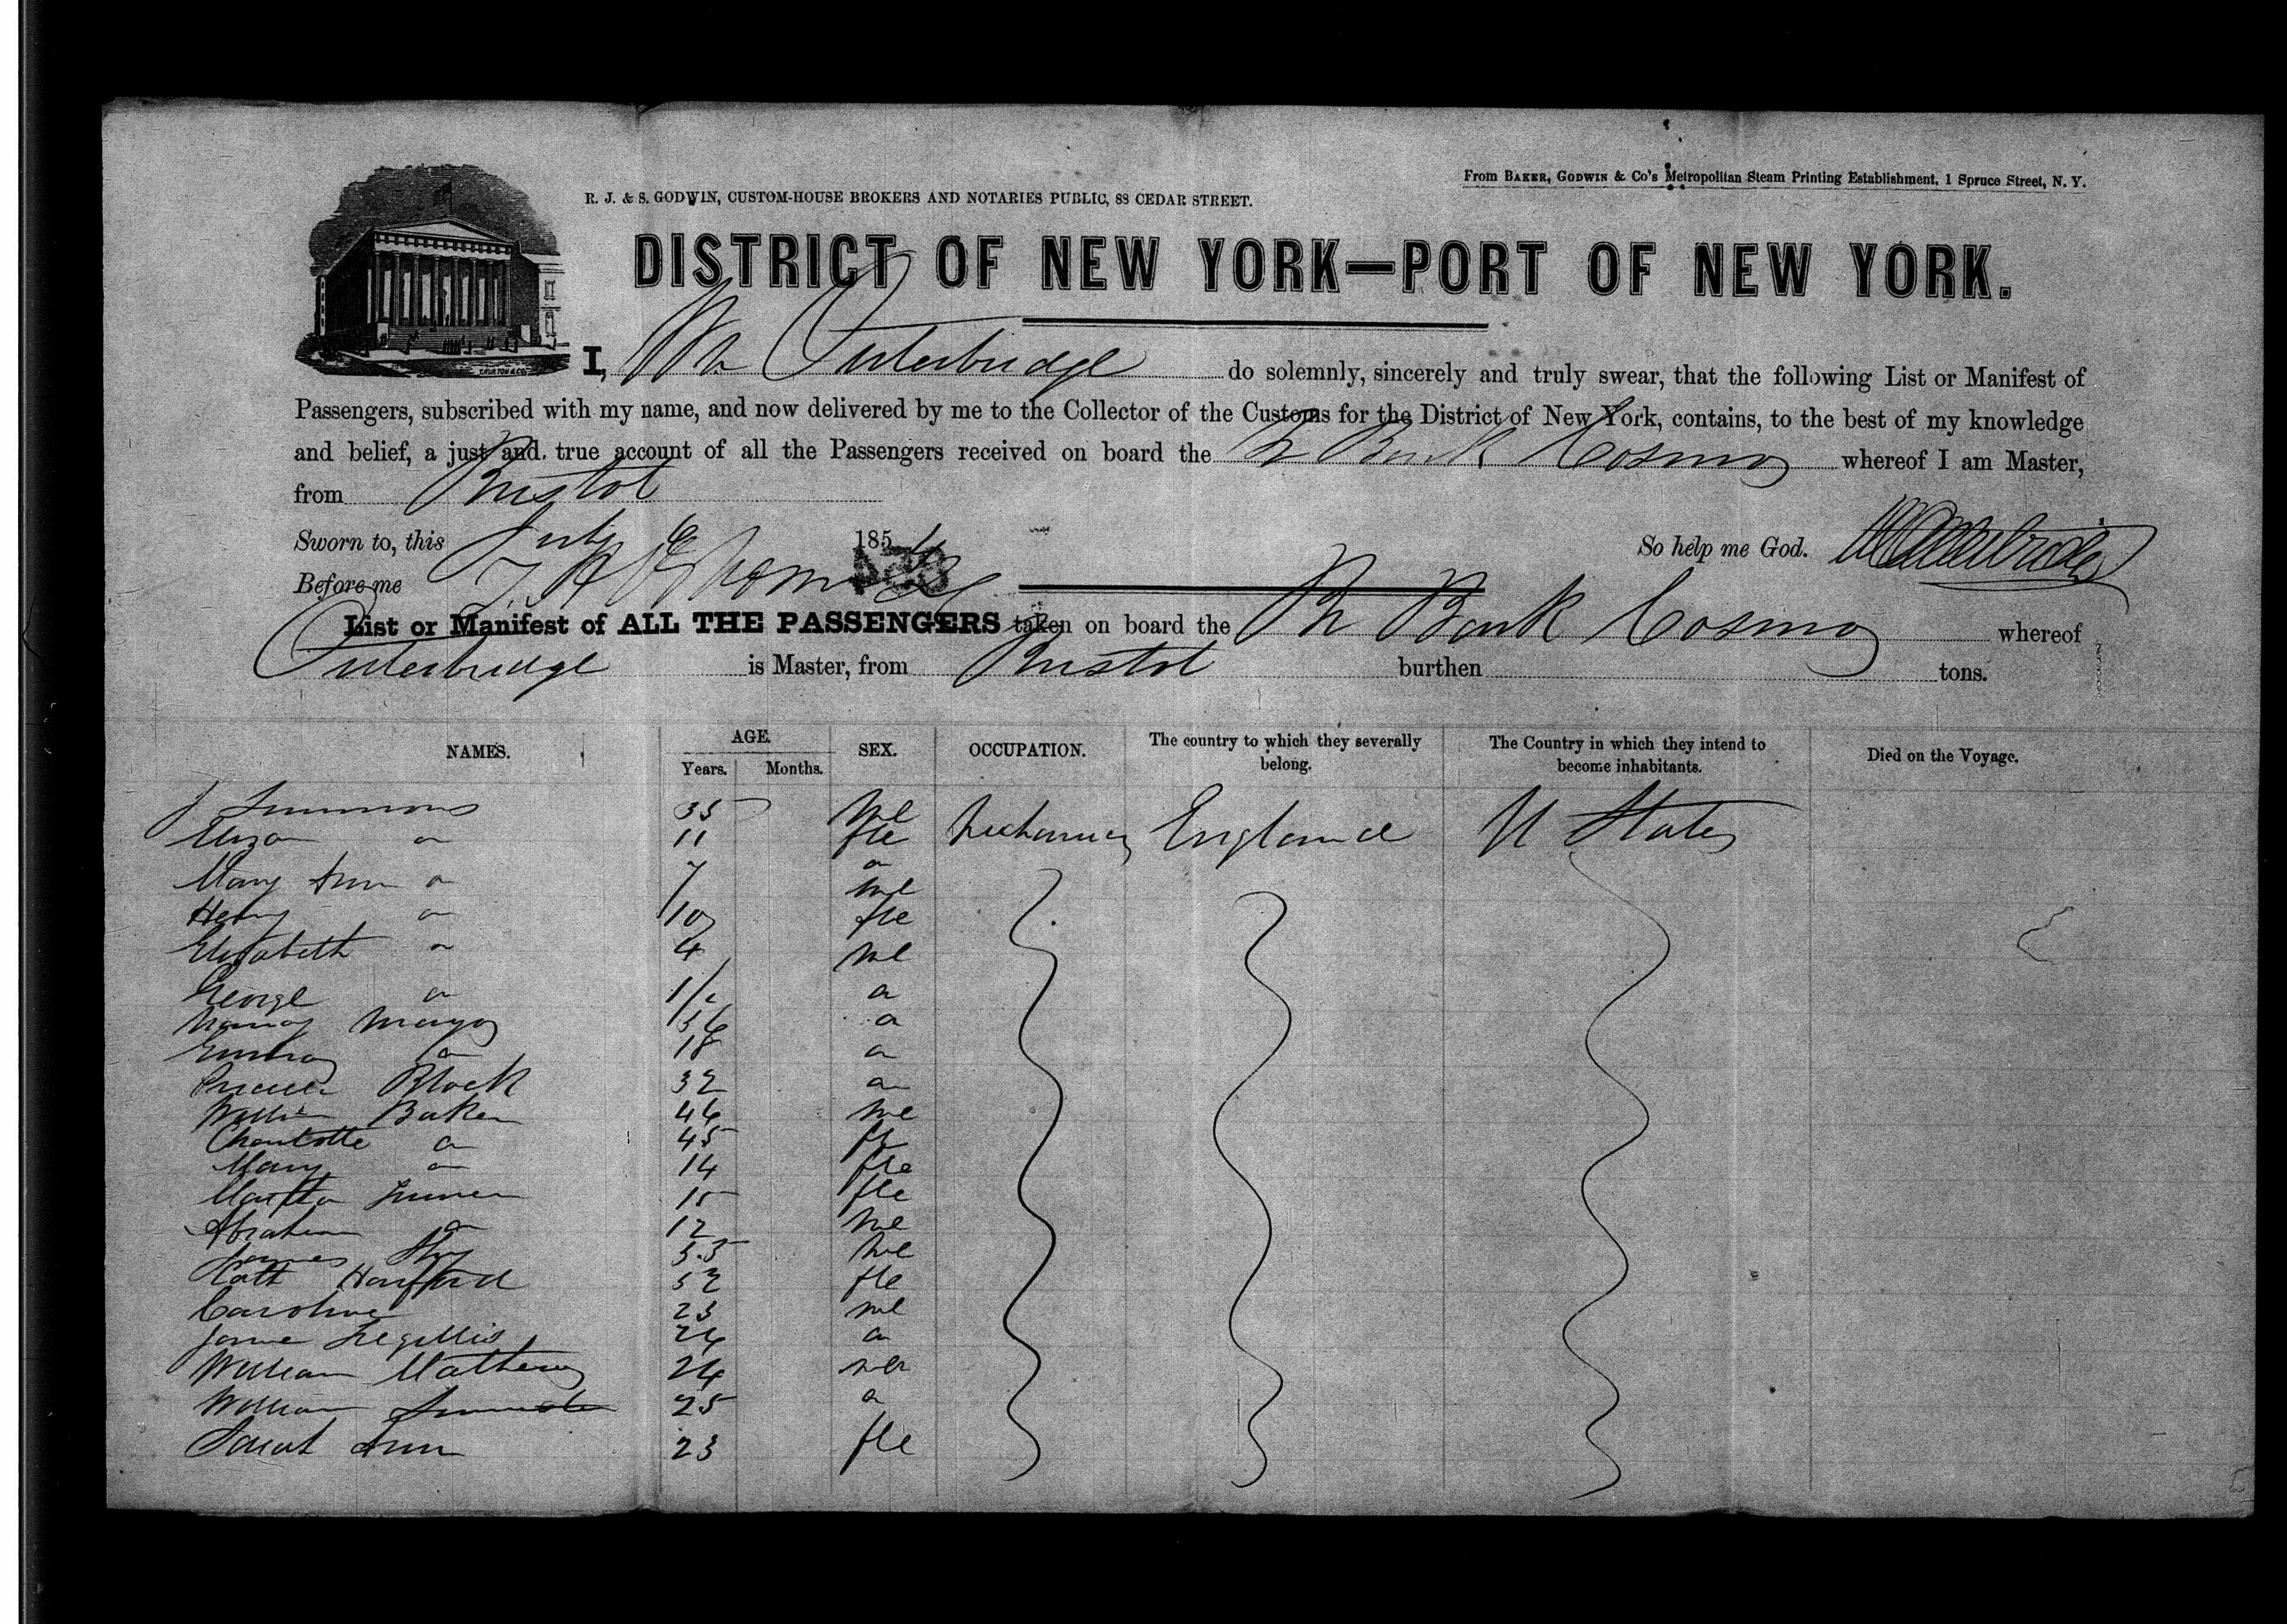 From BAKER, GODWIN & Co's Metropolitan Steam Printing Establishment, 1 Spruce Street, N. Y.
R. J. & S. GODWIN, CUSTOM-HOUSE BROKERS AND NOTARIES PUBLIC, 88 CEDAR STREET.
DISTRICT OF NEW YORK—PORT OF NEW YORK.
I, Wm Outerbridge do solemnly, sincerely and truly swear, that the following List or Manifest of
Passengers, subscribed with my name, and now delivered by me to the Collector of the Customs for the District of New York, contains, to the best of my knowledge
and belief, a just and true account of all the Passengers received on board the Br Bark Cosmo whereof I am Master,
from Bristol
Sworn to, this July 185 So help me God. Outerbridge
Before me
List or Manifest of ALL THE PASSENGERS taken on board the Br Bark Cosmo whereof
Outerbridge is Master, from Bristol burthen tons.
NAMES. AGE. Years. Months. SEX. OCCUPATION. The country to which they severally belong. The Country in which they intend to become inhabitants. Died on the Voyage.
J Simmons 35 ml Mechanics England U States
Eliza 11 fle
Mary Ann 7
Henry 10 ml
Elizabeth 4 fle
George ml
36
18
Black 32
William Baker 46 ml
Charlotte 45 fle
Mary 14 fle
Martha 15 fle
Abraham 12 ml
James ml
Harford 52 fle
Caroline 23
Jane 24
William Mathews 24
William 25
Sarah Ann 23 fle